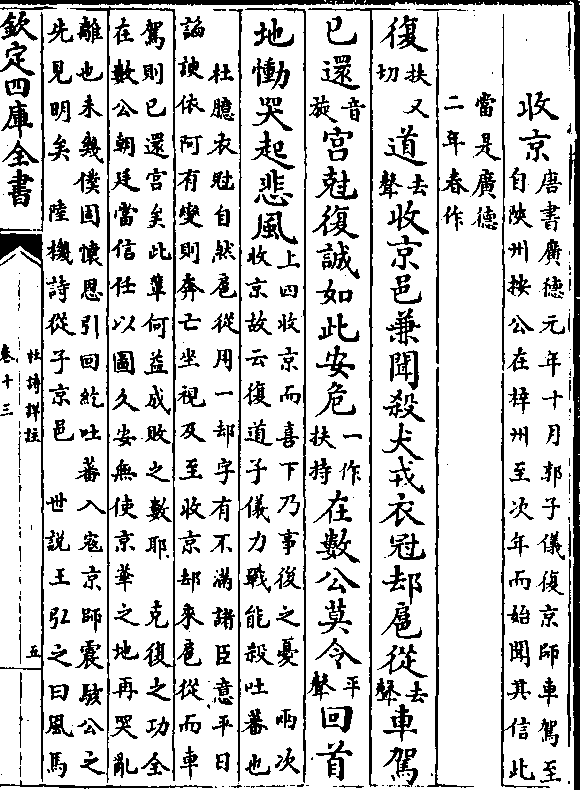 收京唐書廣德元年十月郭子儀復京師車駕至
自陜州按公在梓州至次年而始聞其信此
當是廣德
二年春作
復扶又切道去聲收京邑兼聞殺犬戎衣冠却扈從去聲車駕
已還音旋宮尅復誠如此安危一作扶持在數公莫令平聲回首
地慟哭起悲風上四收京而喜下乃事後之憂　兩次
收京故云復道子儀力戰能殺吐蕃也
杜臆衣冠自然扈從用一却字有不滿諸臣意平日
諂諛依阿有變則奔亡坐視及至收京却來扈從而車
駕則已還宮矣此軰何益成敗之數耶　克復之功全
在數公朝廷當信任以圖久安無使京華之地再哭亂
離也未幾僕固懷恩引回紇吐蕃入寇京師震駭公之
先見明矣　陸機詩從子京邑　世說王弘之曰風馬
欽定四庫全書
杜詩詳註
卷十三
五